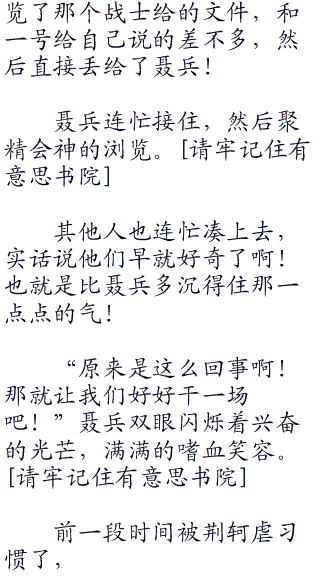 览了那个战士给的文件，和
一号给自己说的差不多，然
后直接丢给了聂兵！
聂兵连忙接住，然后聚
精会神的浏览。[请牢记住有
意思书院]
其他人也连忙凑上去，
实话说他们早就好奇了啊！
也就是比聂兵多沉得住那一
点点的气！
“原来是这么回事啊！
那就让我们好好干一场
吧！”聂兵双眼闪烁着兴奋
的光芒，满满的嗜血笑容。
[请牢记住有意思书院]
前一段时间被荆轲虐习
惯了，